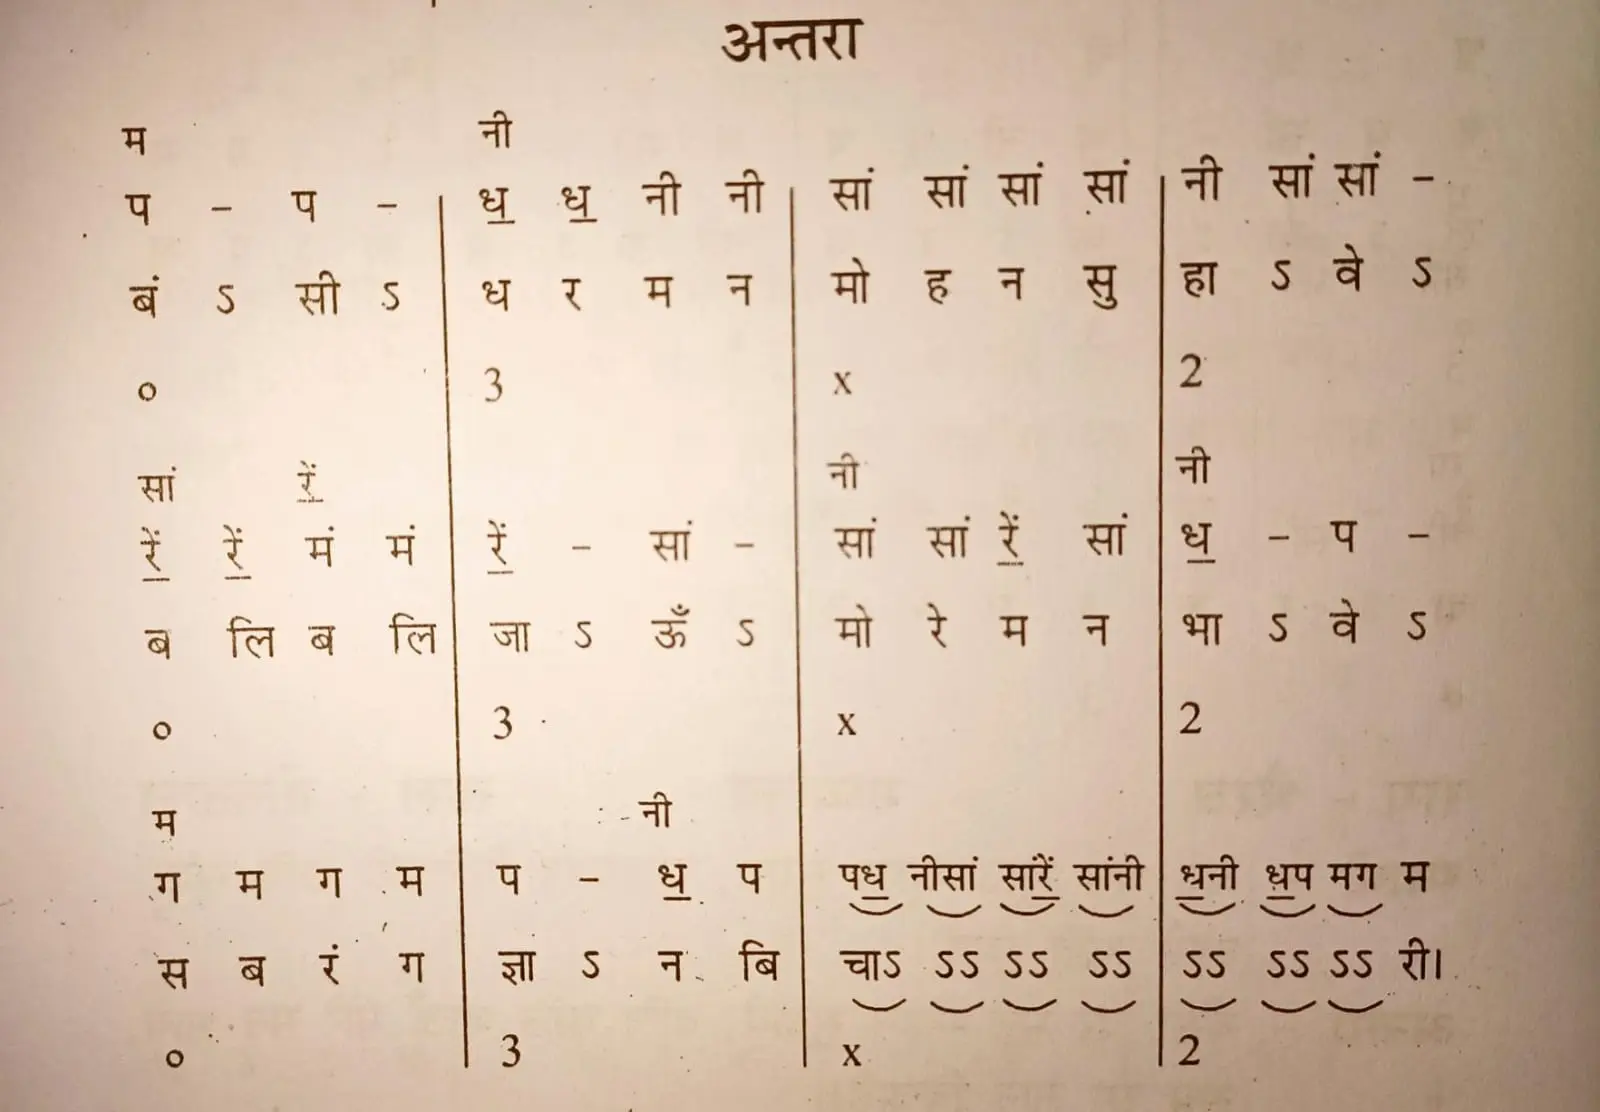 अन्तरा
म नी
प - प - ध॒ ध॒ नी नी सां सां सां सां नी सां सां -
बं ऽ सी ऽ ध र म न मो ह न सु हा ऽ वे ऽ
० 3 x 2
सां रें॒ नी नी
रें॒ रें॒ मं मं रें॒ - सां - सां सां रें॒ सां ध॒ - प -
ब लि ब लि जा ऽ ऊँ ऽ मो रे म न भा ऽ वे ऽ
० 3 x 2
म नी
ग म ग म प - ध॒ प पध॒ नीसां सारें॒ सांनी ध॒नी ध॒प मग म
स ब रं ग ज्ञा ऽ न बि चाऽ ऽऽ ऽऽ ऽऽ ऽऽ ऽऽ ऽऽ री।
० 3 x 2